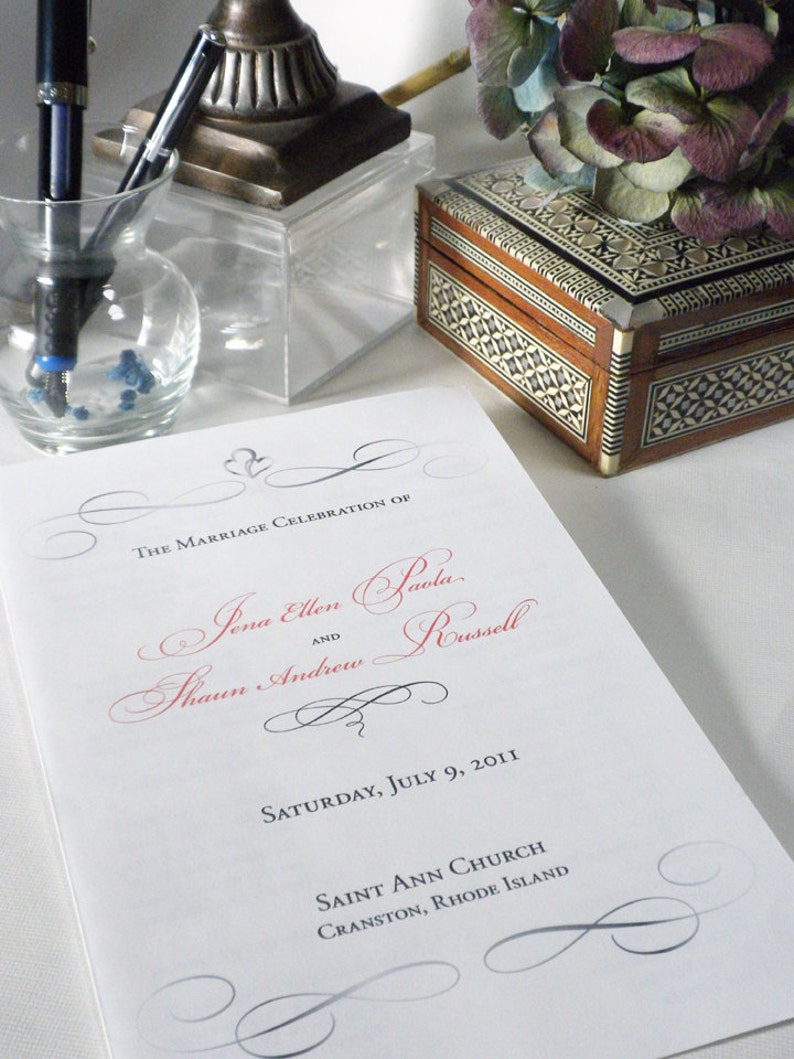 The Marriage Celebration of
Jena Ellen Paola
and
Shaun Andrew Russell
Saturday, July 9, 2011
Saint Ann Church
Cranston, Rhode Island